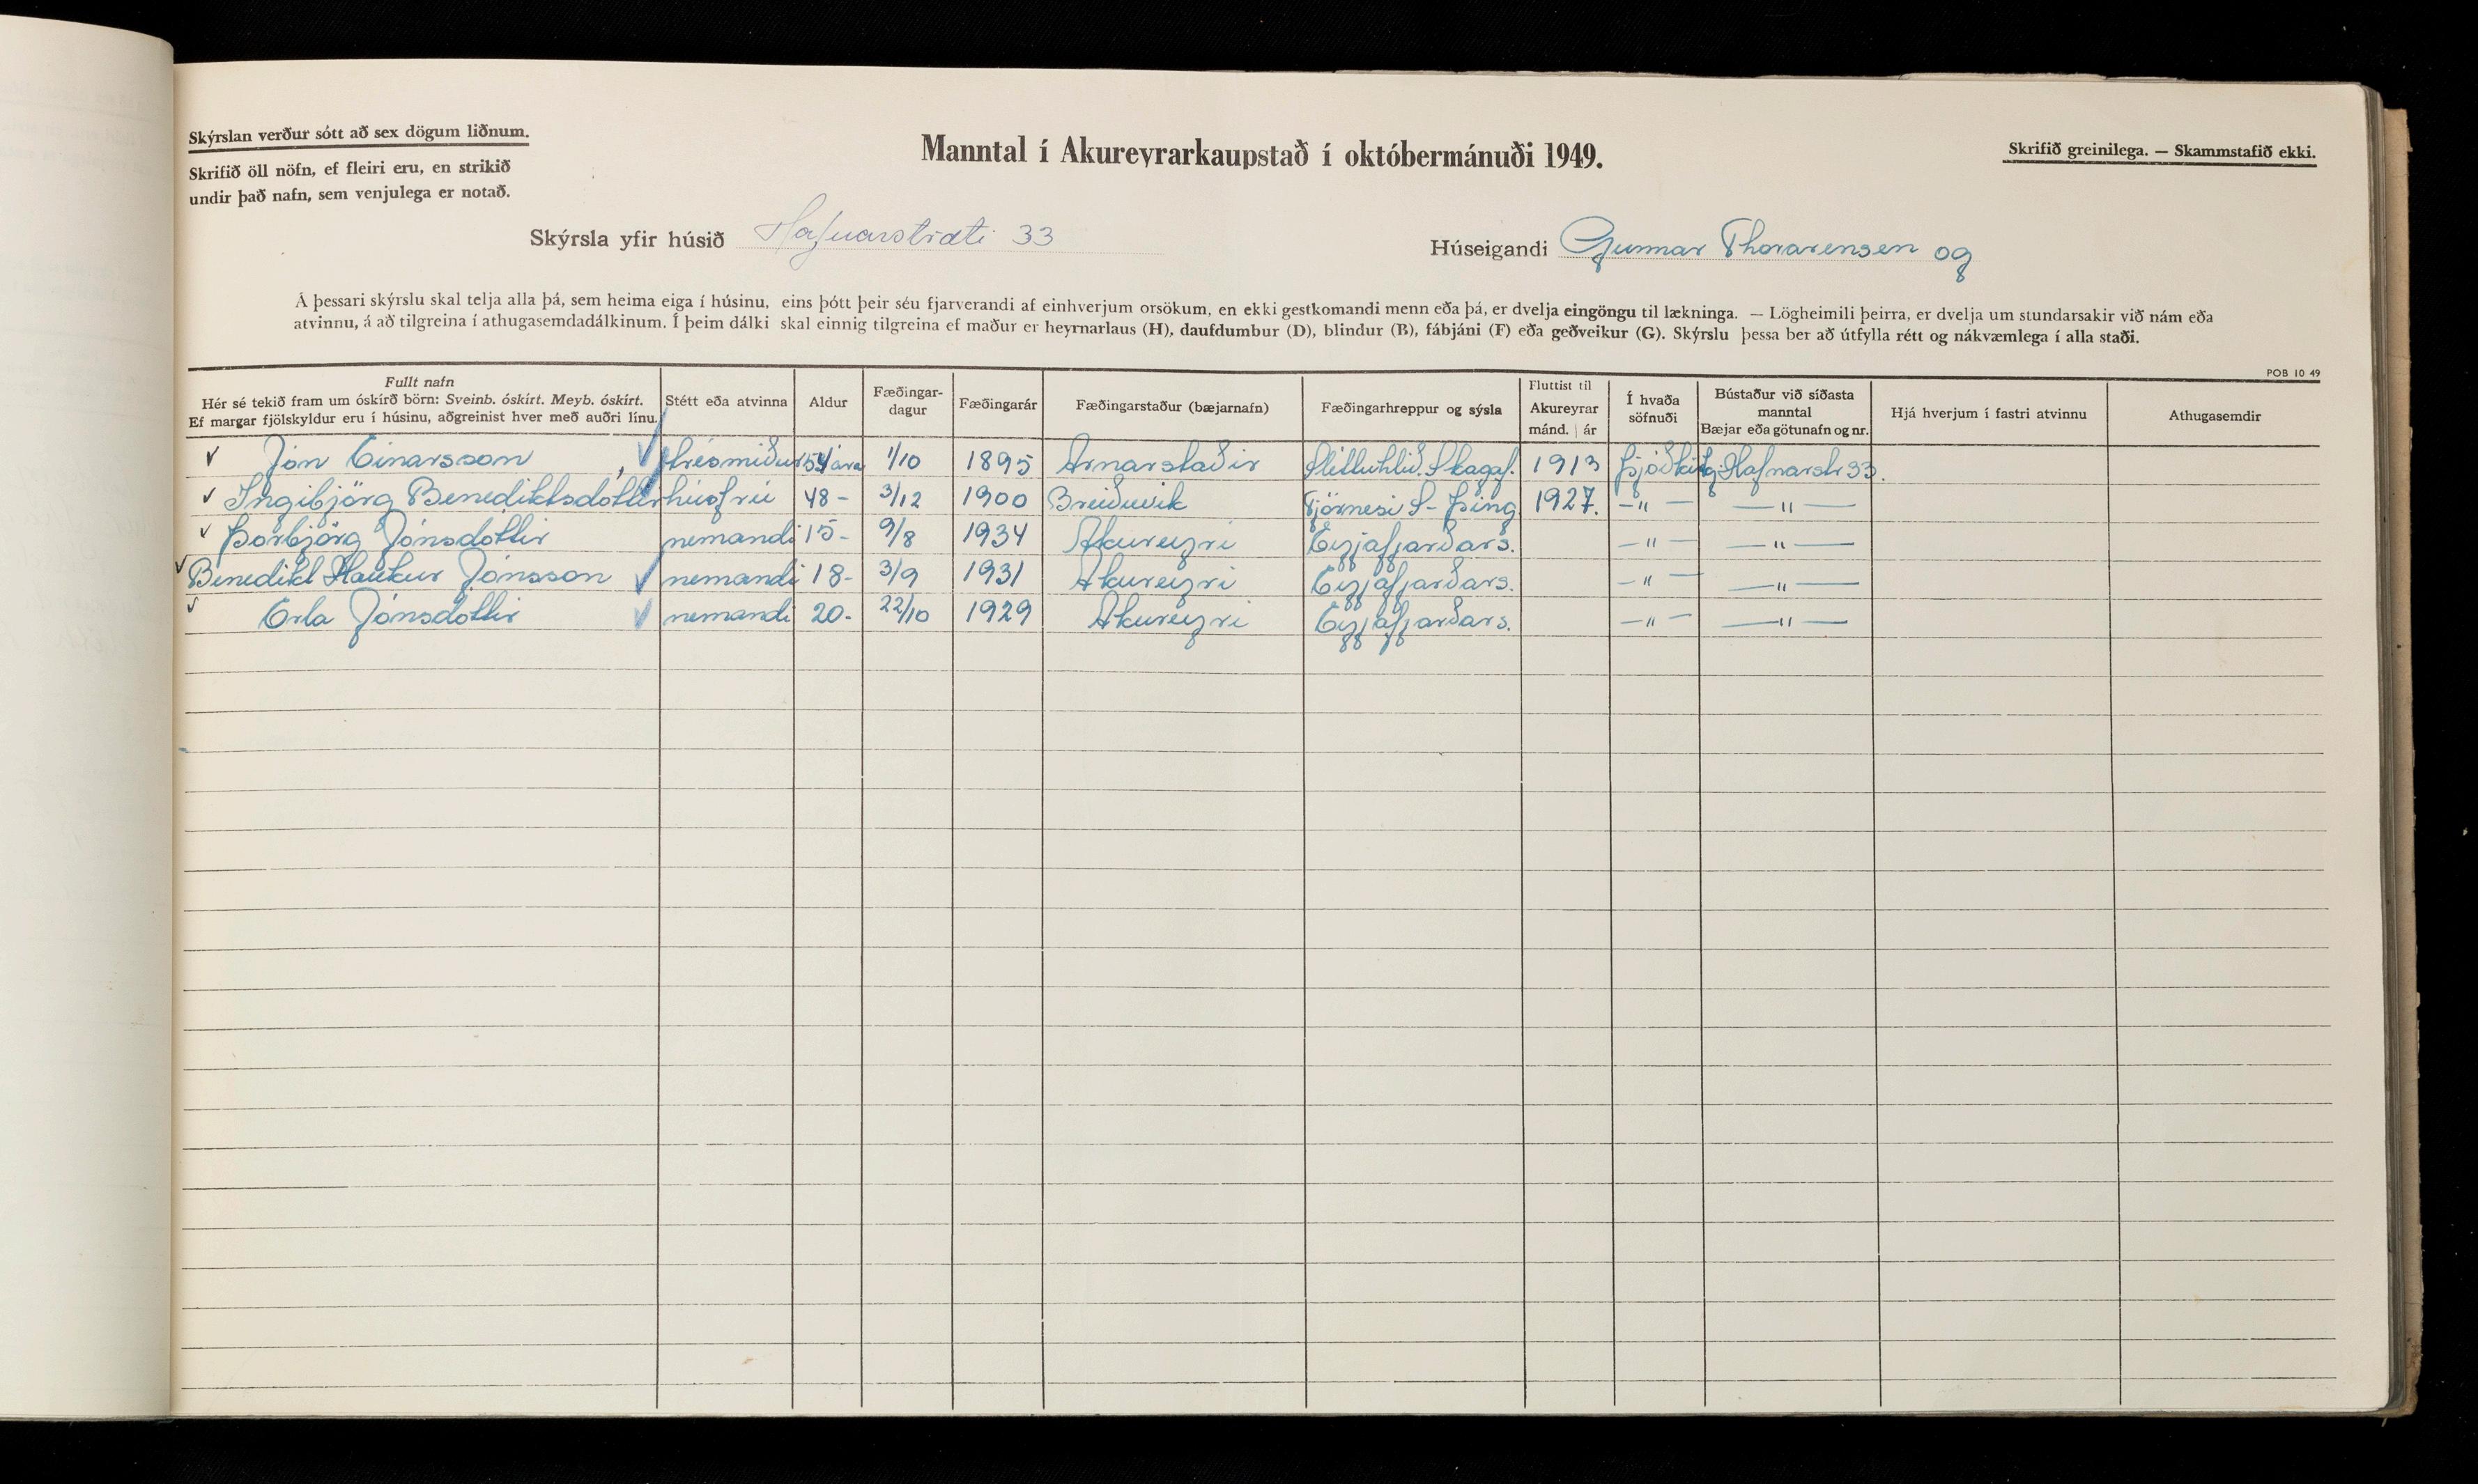 Skýrslan verður sótt að sex dögum liðnum.
Skrifið öll nöfn, ef fleiri eru, en strikið
undir það nafn, sem venjulega er notað.
Manntal í Akureyrarkaupstað í októbermánuði 1949.
Skrifið greinilega. — Skammstafið ekki.
Skýrsla yfir húsið Hafnarstræti 33
Húseigandi Gunnar Thorarensen og
Á þessari skýrslu skal telja alla þá, sem heima eiga í húsinu, eins þótt þeir séu fjarverandi af einhverjum orsökum, en ekki gestkomandi menn eða þá, er dvelja eingöngu til lækninga. — Lögheimili þeirra, er dvelja um stundarsakir við nám eða
atvinnu, á að tilgreina í athugasemdadálkinum. Í þeim dálki skal einnig tilgreina ef maður er heyrnarlaus (H), daufdumbur (D), blindur (B), fábjáni (F) eða geðveikur (G). Skýrslu þessa ber að útfylla rétt og nákvæmlega í alla staði.
POB 10 49
Fullt nafn
Hér sé tekið fram um óskírð börn: Sveinb. óskírt. Meyb. óskírt.
Ef margar fjölskyldur eru í húsinu, aðgreinist hver með auðri línu.
Stétt eða atvinna
Aldur
Fæðingar-
dagur
Fæðingarár
Fæðingarstaður (bæjarnafn)
Fæðingarhreppur og sýsla
Fluttist til
Akureyrar
mánd. | ár
Í hvaða
söfnuði
Bústaður við síðasta
manntal
Bæjar eða götunafn og nr.
Hjá hverjum í fastri atvinnu
Athugasemdir
✓ Jón Einarsson ✓ trésmiður 54 ára 1/10 1895 Arnarstaðir Sléttuhlíð. Skagaf. 1913 Þjóðkirkj. Hafnarstr 33.
✓ Ingibjörg Benediktsdóttir húsfrú 48 - 3/12 1900 Breiðuvik Tjörnesi S- Þing 1927. —"— —"—
✓ Þorbjörg Jónsdóttir nemandi 15 - 9/8 1934 Akureyri Eyjafjarðars. —"— —"—
✓ Benedikt Haukur Jónsson ✓ nemandi 18 - 3/9 1931 Akureyri Eyjafjarðars. —"— —"—
✓ Erla Jónsdóttir ✓ nemandi 20 - 22/10 1929 Akureyri Eyjafjarðars. —"— —"—